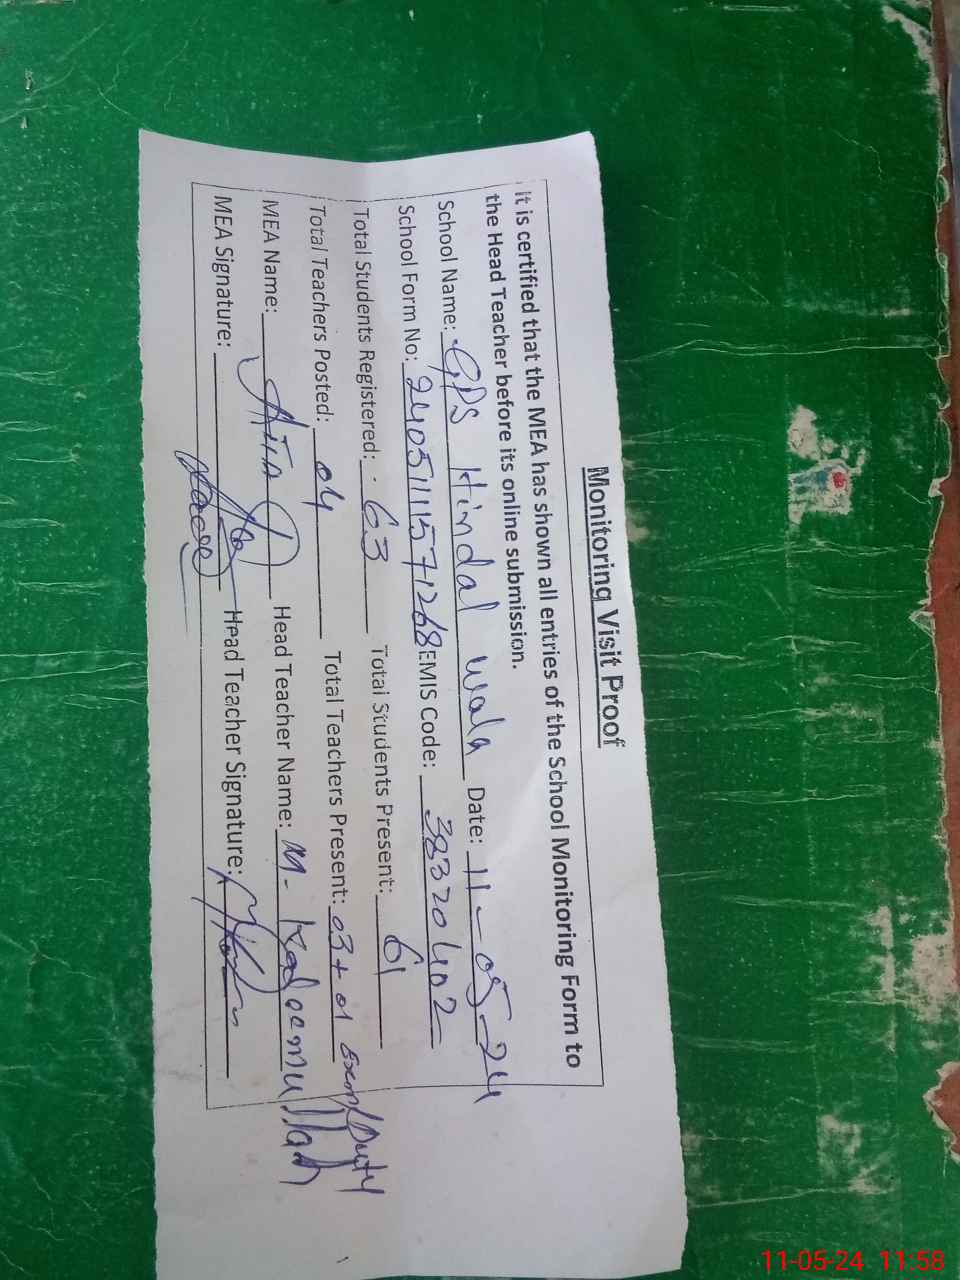 Monitoring Visit Proof
It is certified that the MEA has shown all entries of the School Monitoring Form to
the Head Teacher before its online submission.
School Name: GPS Hindal wala Date: 11-05-24
School Form No: 2405111571268 EMIS Code: 38320402
Total Students Registered: 63 Total Students Present: 61
Total Teachers Posted: 04 Total Teachers Present: 03+01 Exam/Duty
MEA Name: Head Teacher Name: M. Kaleemullah
MEA Signature: Head Teacher Signature:
11-05-24 11:58